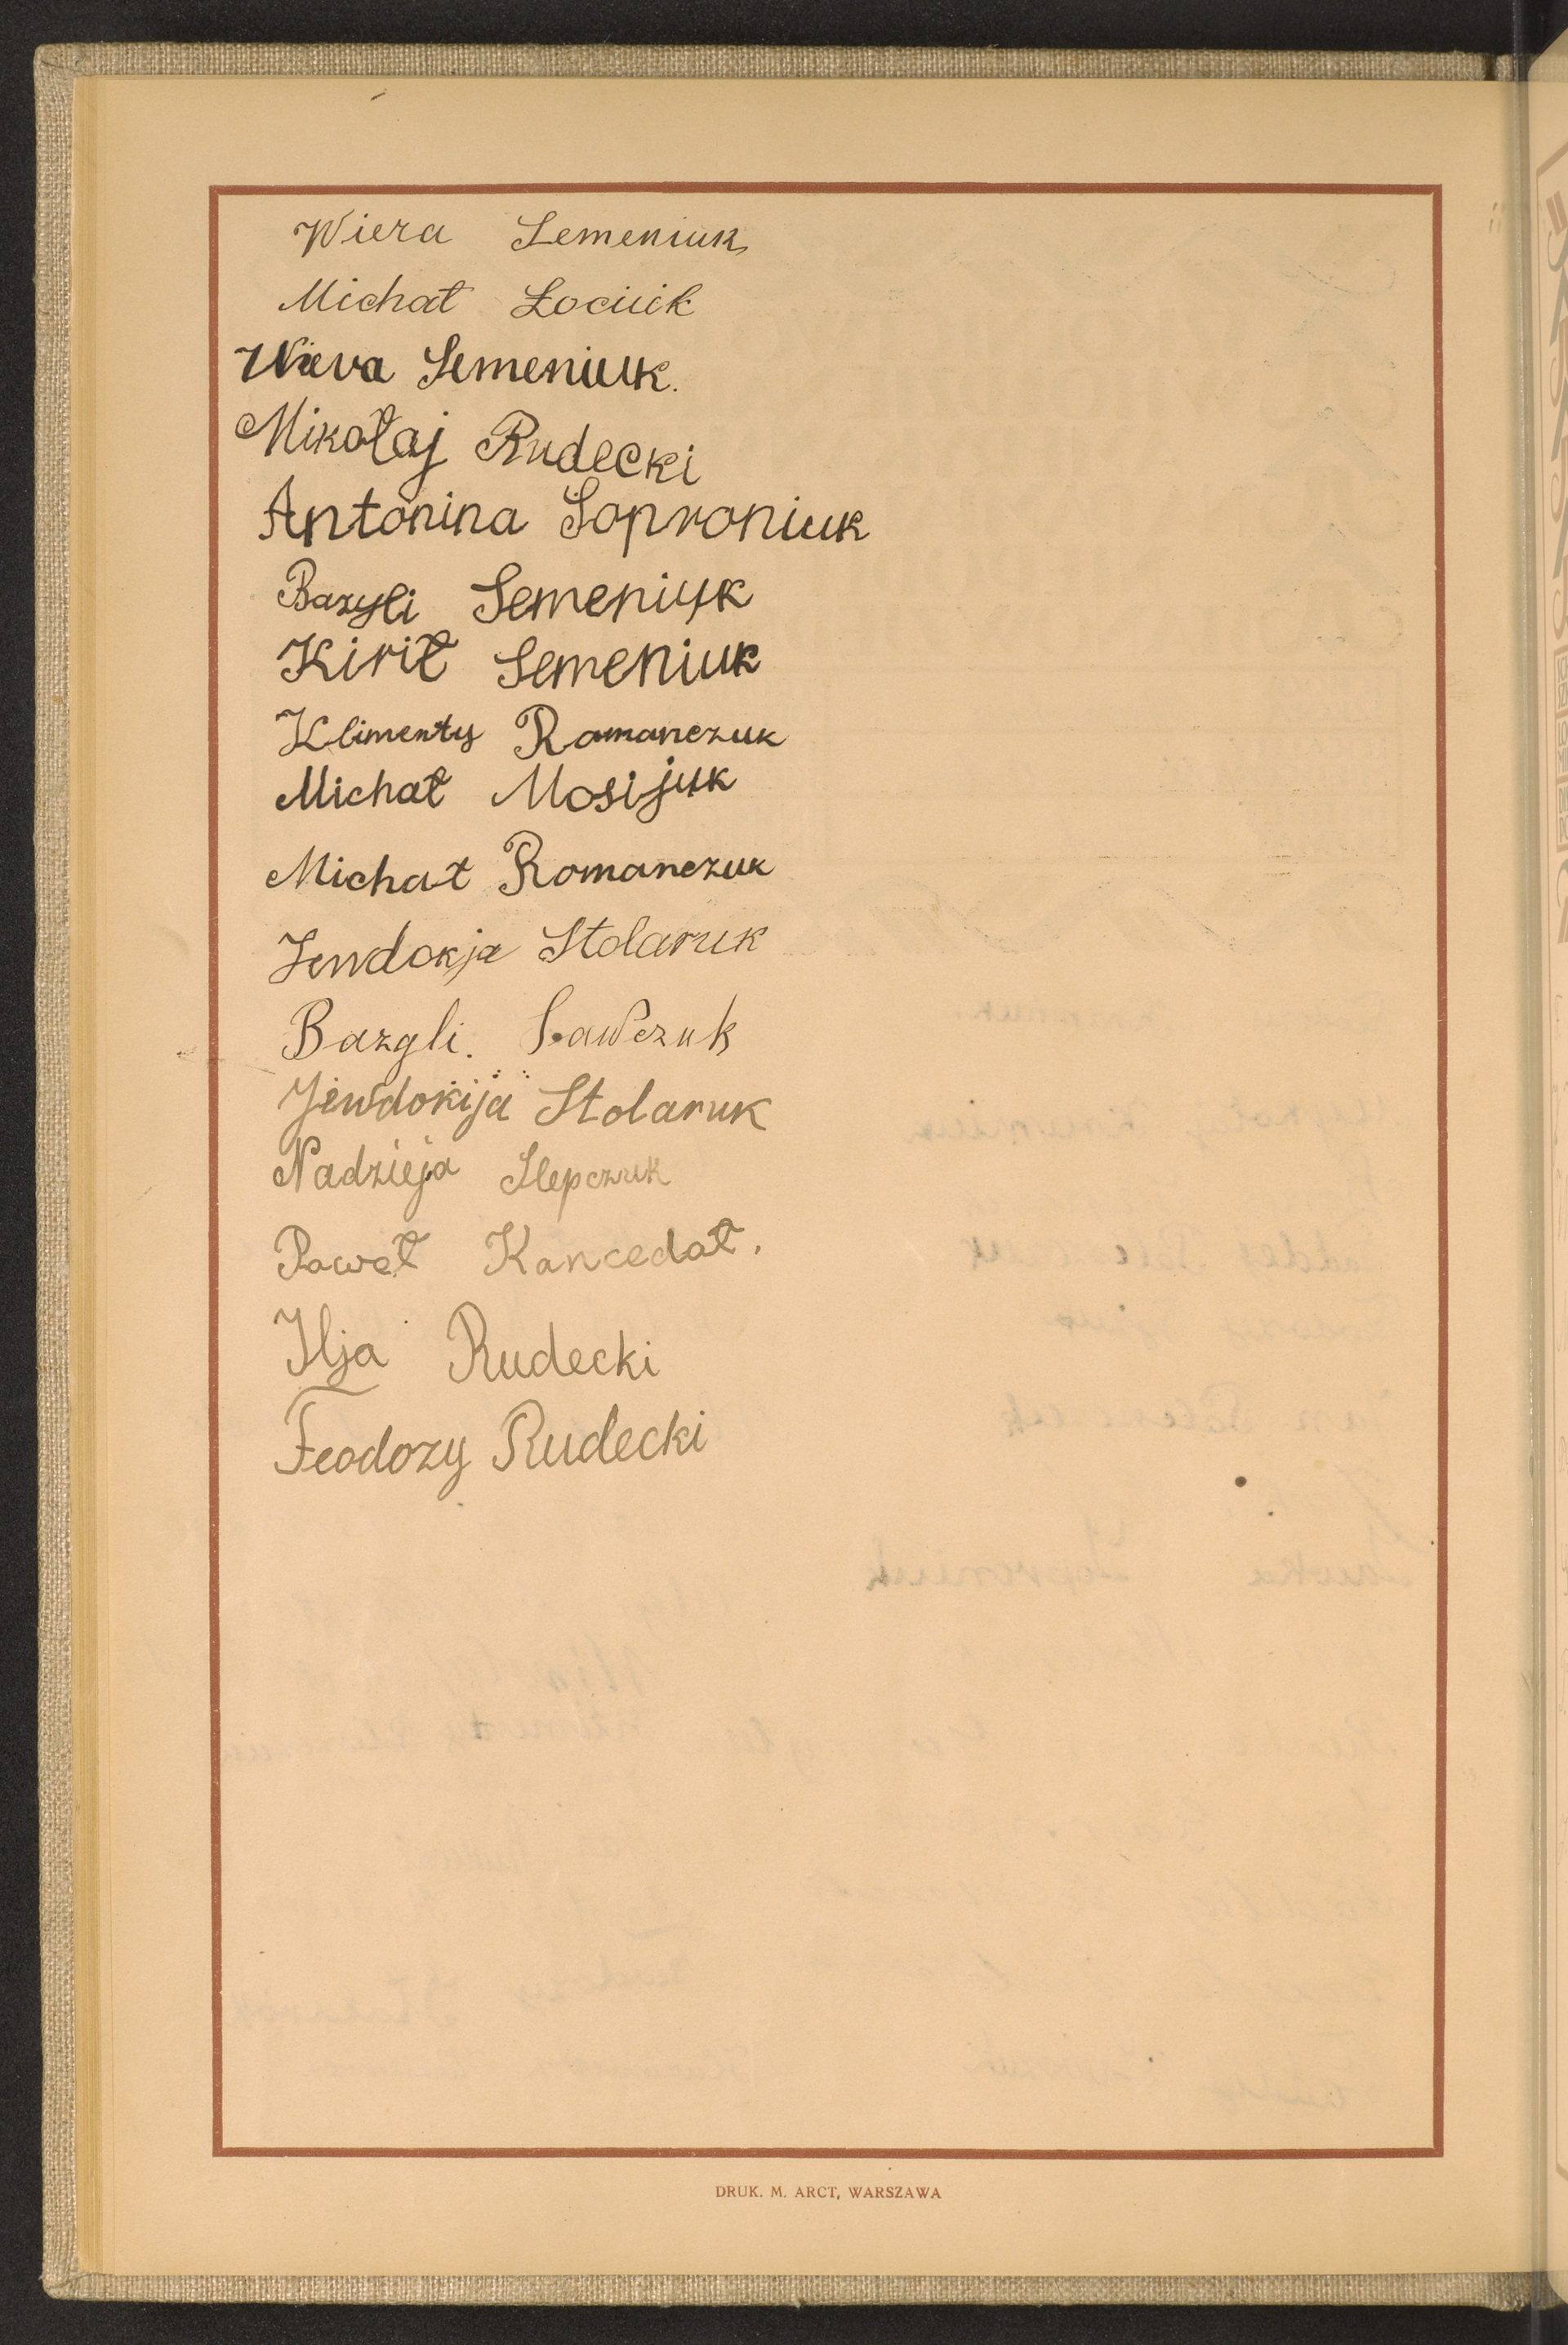 Wiera Semeniuk
Michał Łociuik
Wiera Semeniuk.
Mikołaj Rudecki
Antonina Soproniuk
Bazyli Semeniuk
Kirił Semeniuk
Klimenty Romanczuk
Michał Mosijuk
Michał Romanczuk
Jewdokja Stolaruk
Bazyli. Sawczuk
Jewdokija Stolaruk
Nadzieja Slepczuk
Paweł Kancedał.
Ilja Rudecki
Feodozy Rudecki
DRUK. M. ARCT, WARSZAWA